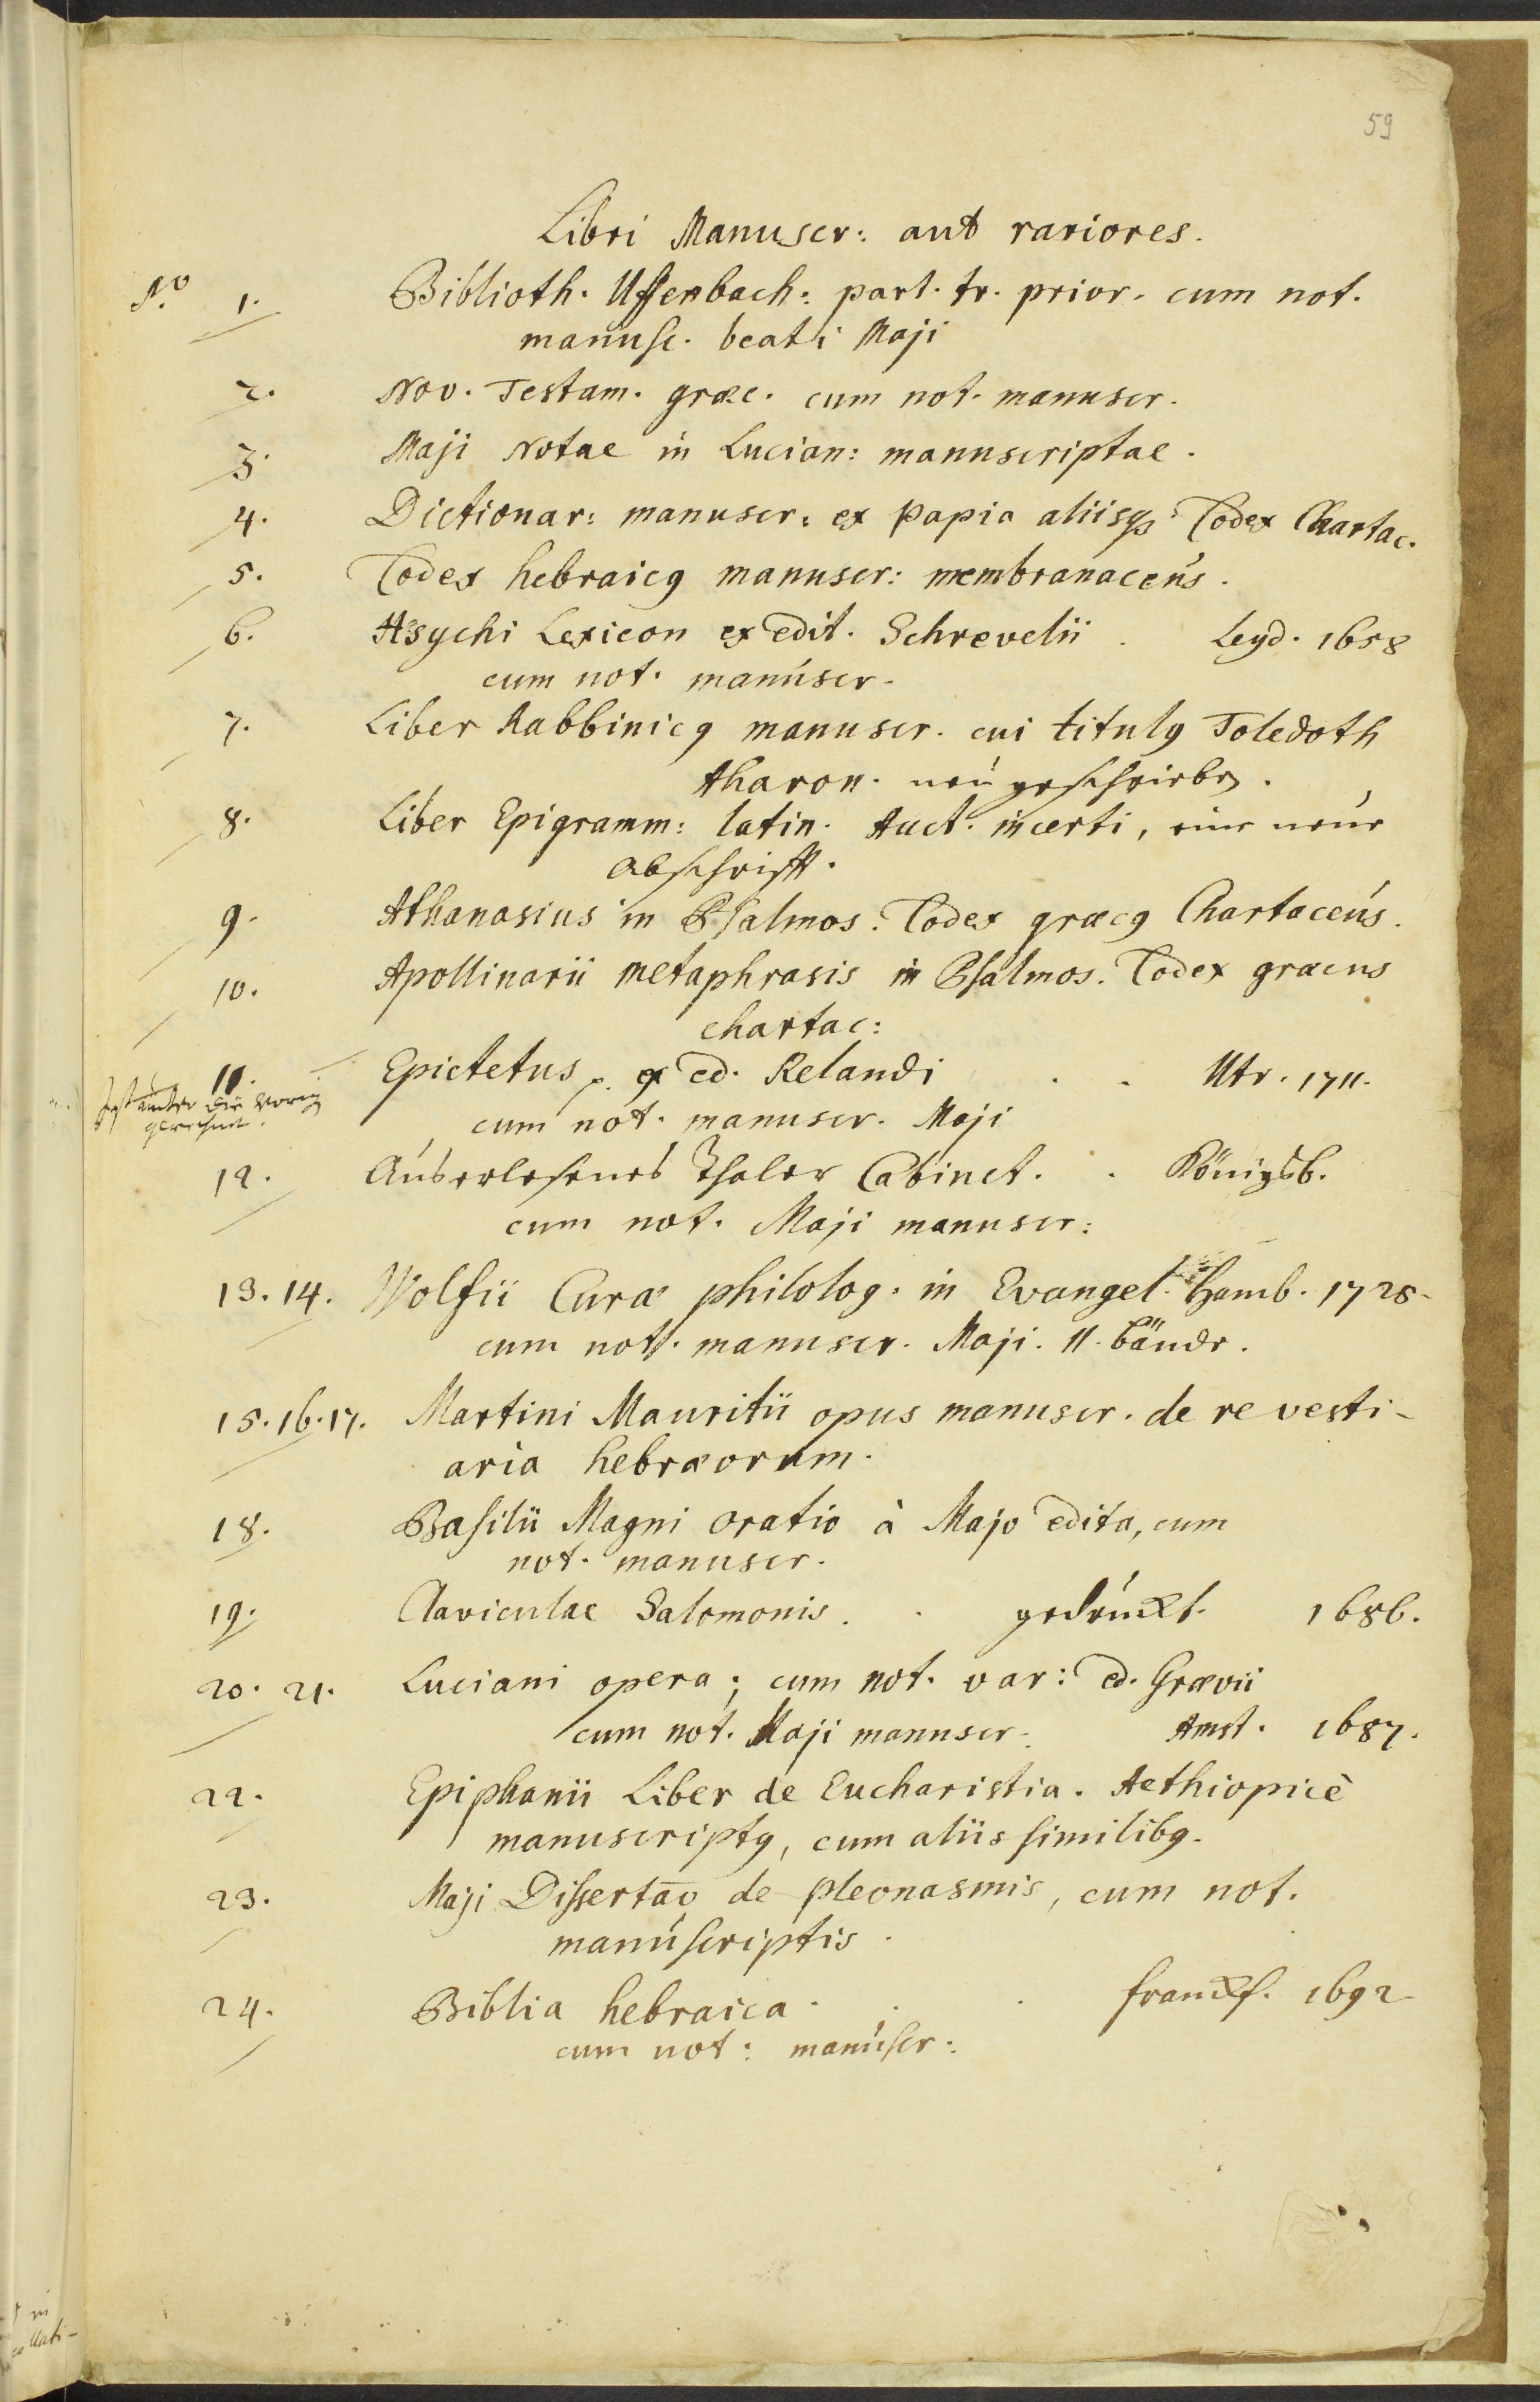 59
Libri Manuscr: aut rariores.
No. 1. Biblioth. Uffenbach: part. tr. prior. cum not.
manusc. beati Maji
2. Nov. Testam. græc. cum not. manuscr.
3. Maji Notae in Lucian: manuscriptae.
4. Dictionar: manuscr: ex papia aliisqꝫ Codex Chartac.
5. Codex hebraicꝰ manuscr: membranaceus.
6. Hsychi Lexicon ex edit. Schrevelii . Leyd. 1658
cum not. manuscr.
7. Liber Rabbinicꝰ manuscr. cui titulꝰ Toledoth
Aharon. neu geschrieben.
8. Liber Epigramm: latin. Auct. incerti, eine neue
Abschrifft.
9. Athanasius in Psalmos. Codex græcꝰ Chartaceus.
10. Apollinarii metaphrasis in Psalmos. Codex græcus
chartac:
11. Epictetus, ex ed. Relandi . . Utr. 1711.
ist unter die vorig
gerechnet.
cum not. manuscr. Maji
12. Auserlesenes Thaler Cabinet. . Königsb.
cum not. Maji manuscr:
13. 14. Wolfii Curæ philolog. in Evangel. Hamb. 1725.
cum not. manuscr. Maji. II. Bände.
15. 16. 17. Martini Mauritii opus manuscr. de re vesti-
aria hebræorum.
18. Basilii Magni oratio à Majo edita, cum
not. manuscr.
19. Claviculae Salomonis . . gedruckt. 1686.
20. 21. Luciani opera; cum not. var: ed. Grævii
cum not. Maji manuscr. Amst. 1687.
22. Epiphanii Liber de Eucharistia. Aethiopicè
manuscriptꝰ, cum aliis similibꝰ.
23. Maji Dissertao̅ de pleonasmis, cum not.
manuscriptis.
24. Biblia hebraica . . . franckf. 1692
cum not: manuscr: